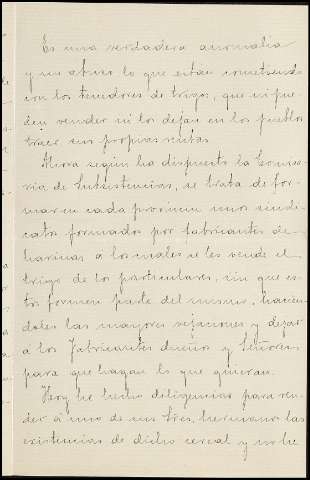 Es una verdadera anomalia
y un abuso lo que estan cometiendo
con los tenedores de trigo, que ni pue-
den vender ni los dejan en los pueblos
traer sus propias rentas.
Ahora según ha dispuesto la Comisa-
ria de Subsistencias, se trata de for-
mar en cada provincia unos sindi-
catos formados por fabricantes de
harinas a los cuales se les vende el
trigo de los particulares, sin que es-
tos formen parte del mismo, hacien-
doles las mayores vejaciones y dejar
a los fabricantes dueños y señores
para que hagan lo que quieran.
Hoy he hecho diligencias para ven-
der a uno de sus tres, hermano las
existencias de dicho cereal y no he